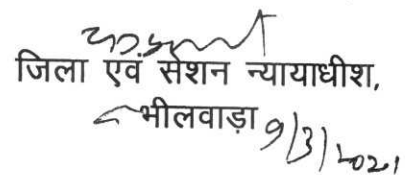 जिला एवं सेशन न्यायाधीश,
भीलवाड़ा 9/3/2021